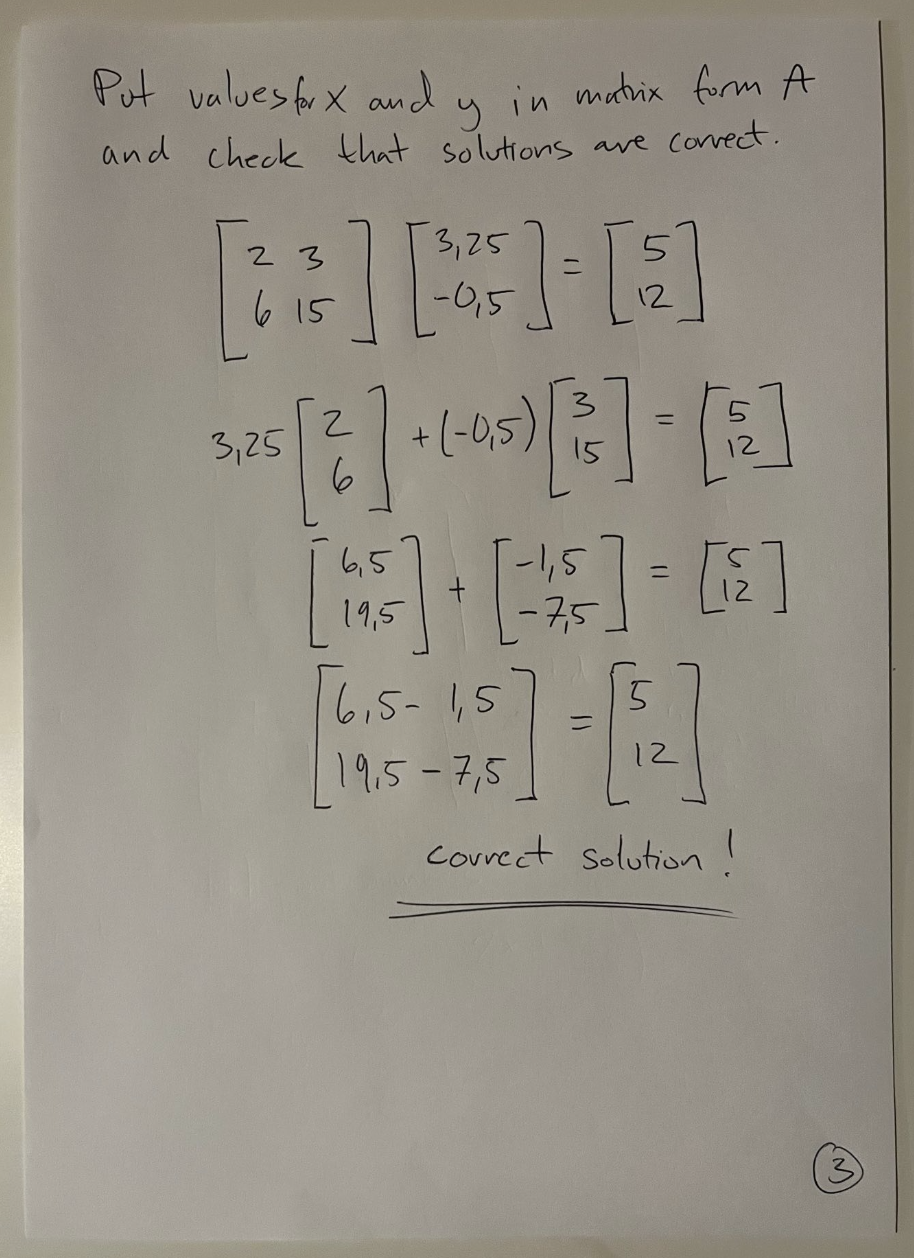 Put values for X and y in matrix form A
and check that solutions are correct.
[2 3; 6 15] [3,25; -0,5] = [5; 12]
3,25 [2; 6] + (-0,5) [3; 15] = [5; 12]
[6,5; 19,5] + [-1,5; -7,5] = [5; 12]
[6,5 - 1,5; 19,5 - 7,5] = [5; 12]
correct solution!
3